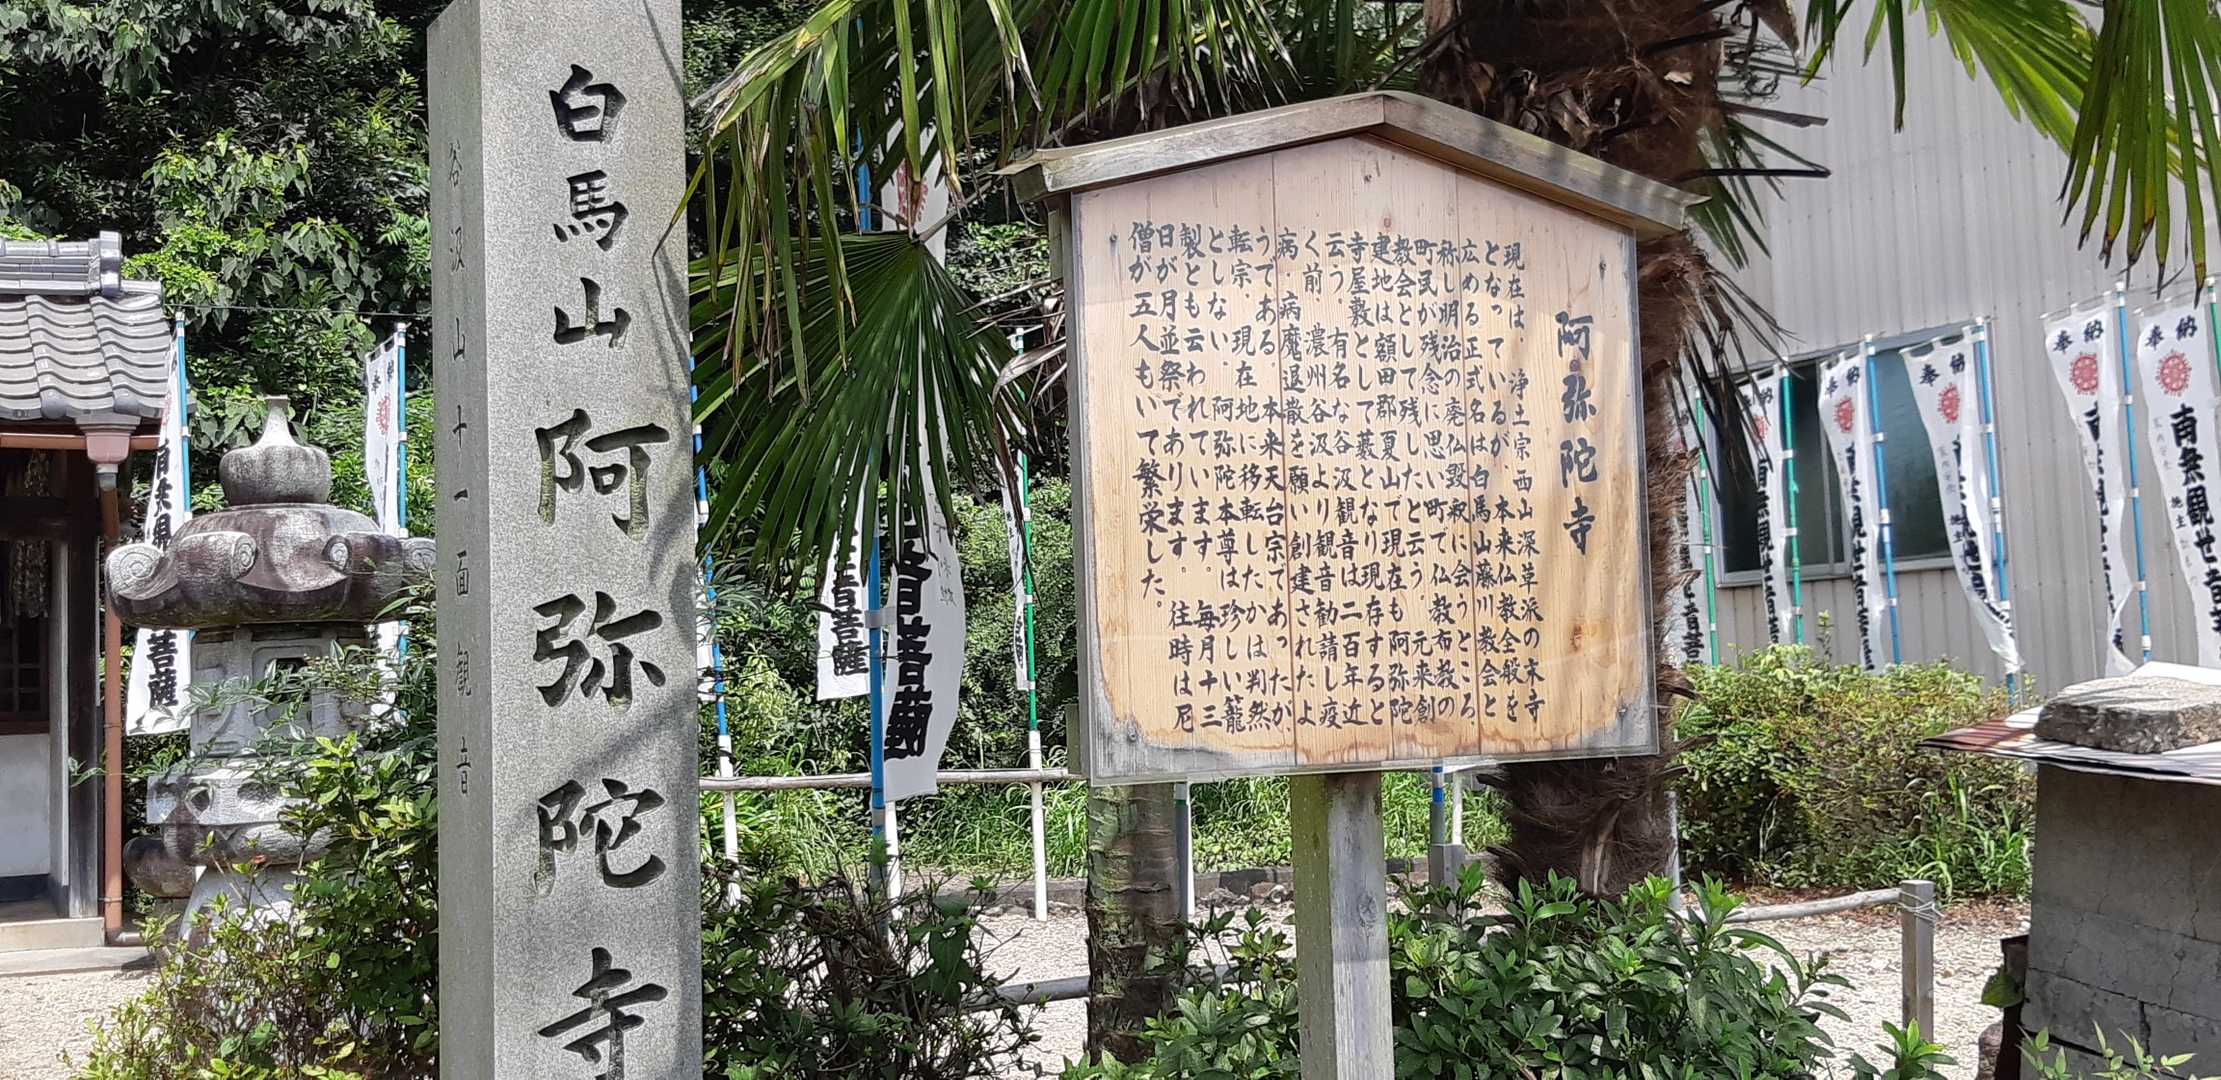 白馬山阿弥陀寺
谷汲山十一面観音
阿弥陀寺
現在は、浄土宗西山深草派の末寺
となっているが、本来仏教全般を
広める正式名は白馬山藤川教会と
称し明治の廃仏毀釈に会うところ、
町民が残念に思い町で仏教布教の
教会として残したと云う。元来創
建地は額田郡夏山で現在も阿弥陀
寺屋敷として藪となり現存すると
云う。有名な谷汲観音は二百年近
く前、濃州谷汲より観音勧請し疫
病、病魔退散を願い創建されたよ
うである。本来天台宗であったが、
転宗、現在地に移転したかは判然
としない。阿弥陀本尊は珍しい籠
製とも云われています。毎月十三
日が月並祭であります。往時は尼
僧が五人もいて繁栄した。
奉納
南無観世音菩
奉納
南無観世
奉納
奉納
南無観世音菩
南無観世音菩
音菩薩
音菩薩
奉納
南無観
菩薩